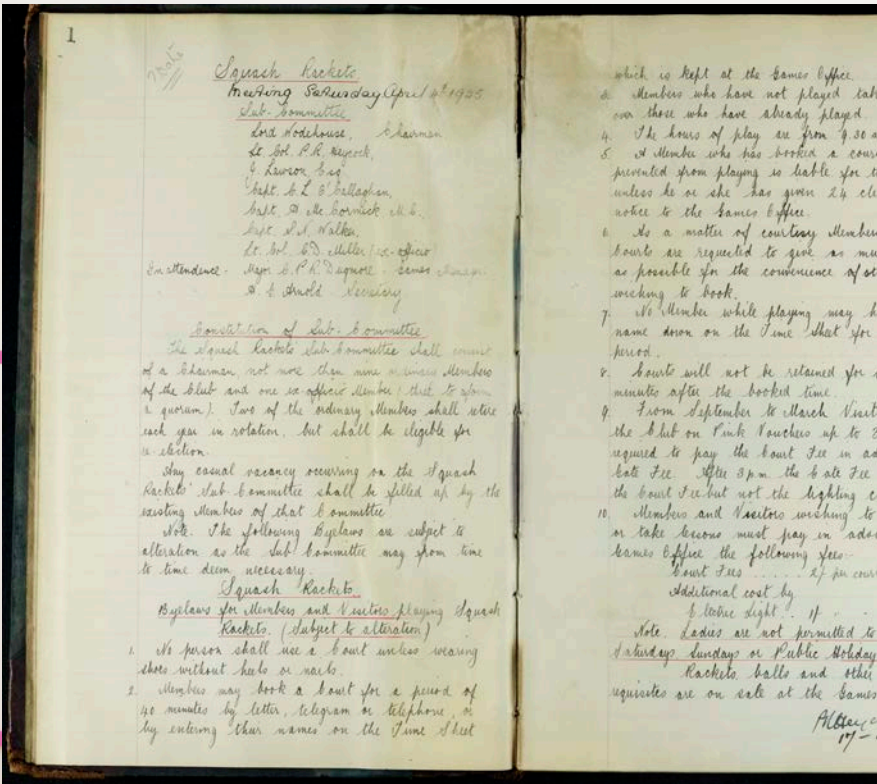 1
Squash Rackets
Meeting Saturday April 4th 1935
Sub-Committee
Lord Wodehouse, Chairman
Lt. Col. P.R.
J. Lawson Esq
Capt. C. L. O'Callaghan,
Capt. A. Mc. Cormick M.C.
Capt. N. Walker.
Lt. Col. E.D. Miller (ex-officio)
In attendence. Major C. P. R. Dugmore - Games Manager
A. E Arnold Secretary
Constitution of Sub-Committee
The Squash Rackets Sub-Committee shall consist
of a Chairman, not more than nine ordinary Members
of the Club and one ex-officio Member (three to form
a quorum). Two of the ordinary Members shall retire
each year in rotation, but shall be eligible for
re-election.
Any casual vacancy occurring on the Squash
Rackets Sub-Committee shall be filled up by the
existing Members of that Committee
Note. The following Byelaws are subject to
alteration as the Sub Committee may from time
to time deem necessary.
Squash Rackets
Byelaws for Members and Visitors playing Squash
Rackets. (Subject to alteration)
1. No person shall use a Court unless wearing
shoes without heels or nails.
2. Members may book a Court for a period of
40 minutes by letter, telegram or telephone, or
by entering their names on the Time Sheet
which is kept at the Games Office.
3. Members who have not played
over those who have already played.
4. The hours of play are from 9.30
5. A Member who has booked a
prevented from playing is liable for
unless he or she has given 24
notice to the Games Office.
6. As a matter of courtesy Members
Courts are requested to give as
as possible for the convenience of
wishing to book.
7. No Member while playing may
name down on the Time Sheet for
period.
8. Courts will not be retained for
minutes after the booked time.
9. From September to March
the Club on Pink Vouchers up to
required to pay the Court Fee in
Gate Fee. After 3 p.m. the Gate Fee
the Court Fee but not the lighting
10. Members and Visitors wishing to
or take lessons must pay in
Games Office the following fees:-
Court Fees ...... 2/- per
Additional cost by
Electric Light.. 1/-
Note. Ladies are not permitted to
Saturdays Sundays or Public
Rackets, balls and other
requisites are on sale at the Games
17-